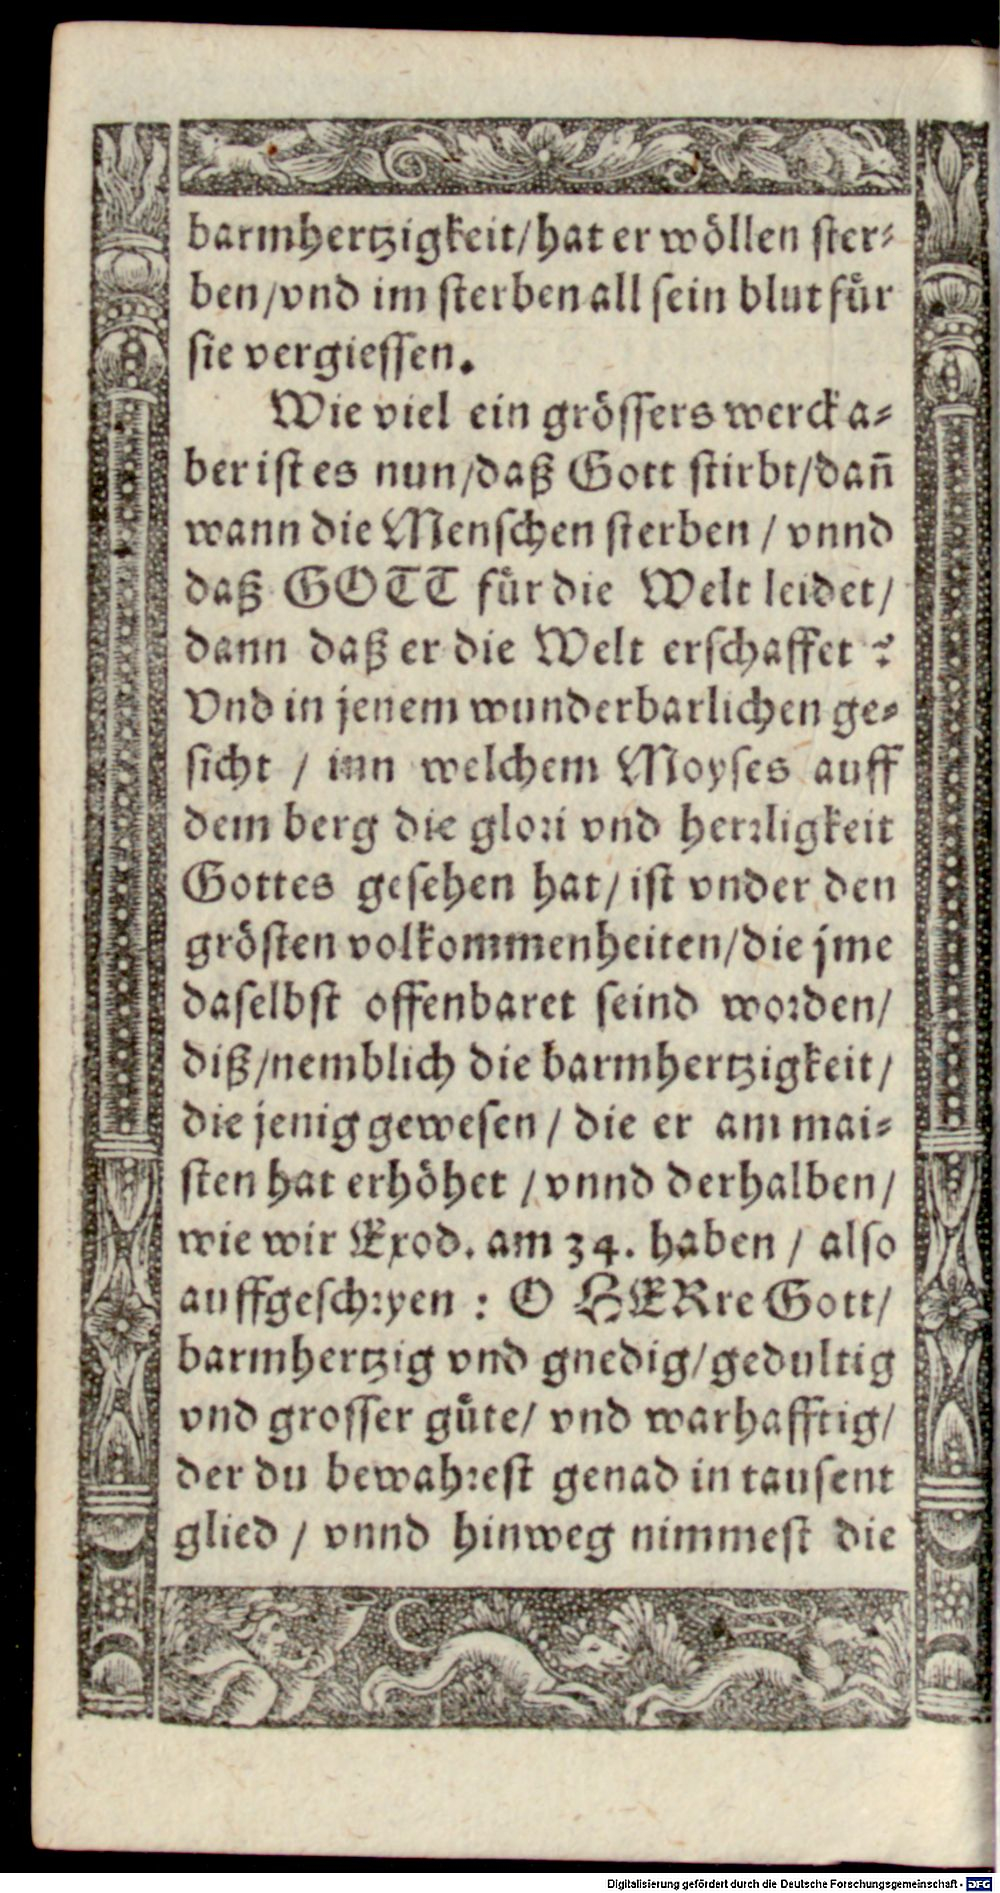 barmhertzigkeit/hat er wöllen ster⸗
ben/vnd im sterben all sein blut fůr
sie vergiessen.
Wie viel ein grössers werck a⸗
ber ist es nun/daß Gott stirbt/dañ
wann die Menschen sterben / vnnd
daß GOTT fůr die Welt leidet/
dann daß er die Welt erschaffet ?
Vnd in jenem wunderbarlichen ge⸗
sicht / inn welchem Moyses auff
dem berg die glori vnd herrligkeit
Gottes gesehen hat/ ist vnder den
grösten volkommenheiten/die jme
daselbst offenbaret seind worden/
diß/nemblich die barmhertzigkeit/
die jenig gewesen / die er am mai⸗
sten hat erhöhet / vnnd derhalben/
wie wir Exod. am 34. haben / also
auffgeschryen : O HERre Gott/
barmhertzig vnd gnedig/gedultig
vnd grosser gůte/ vnd warhafftig/
der du bewahrest genad in tausent
glied / vnnd hinweg nimmest die
Digitalisierung gefördert durch die Deutsche Forschungsgemeinschaft - DFG